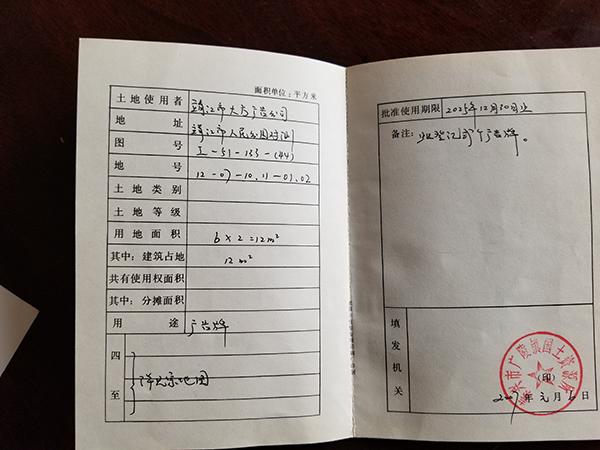 面积单位：平方米
土地使用者 市大方广告公司
地址 市人民公园对
图号 I-51-133-(44)
地号 12-07-10.11-01.02
土地类别
土地等级
用地面积 6×2=12m²
其中：建筑占地 12m²
共有使用权面积
其中：分摊面积
用途 广告牌
四至 地图
批准使用期限 2025年12月30日止
备注： 登记 广告牌。
填发机关
市广陵 国土 所
（印）
年元月 日